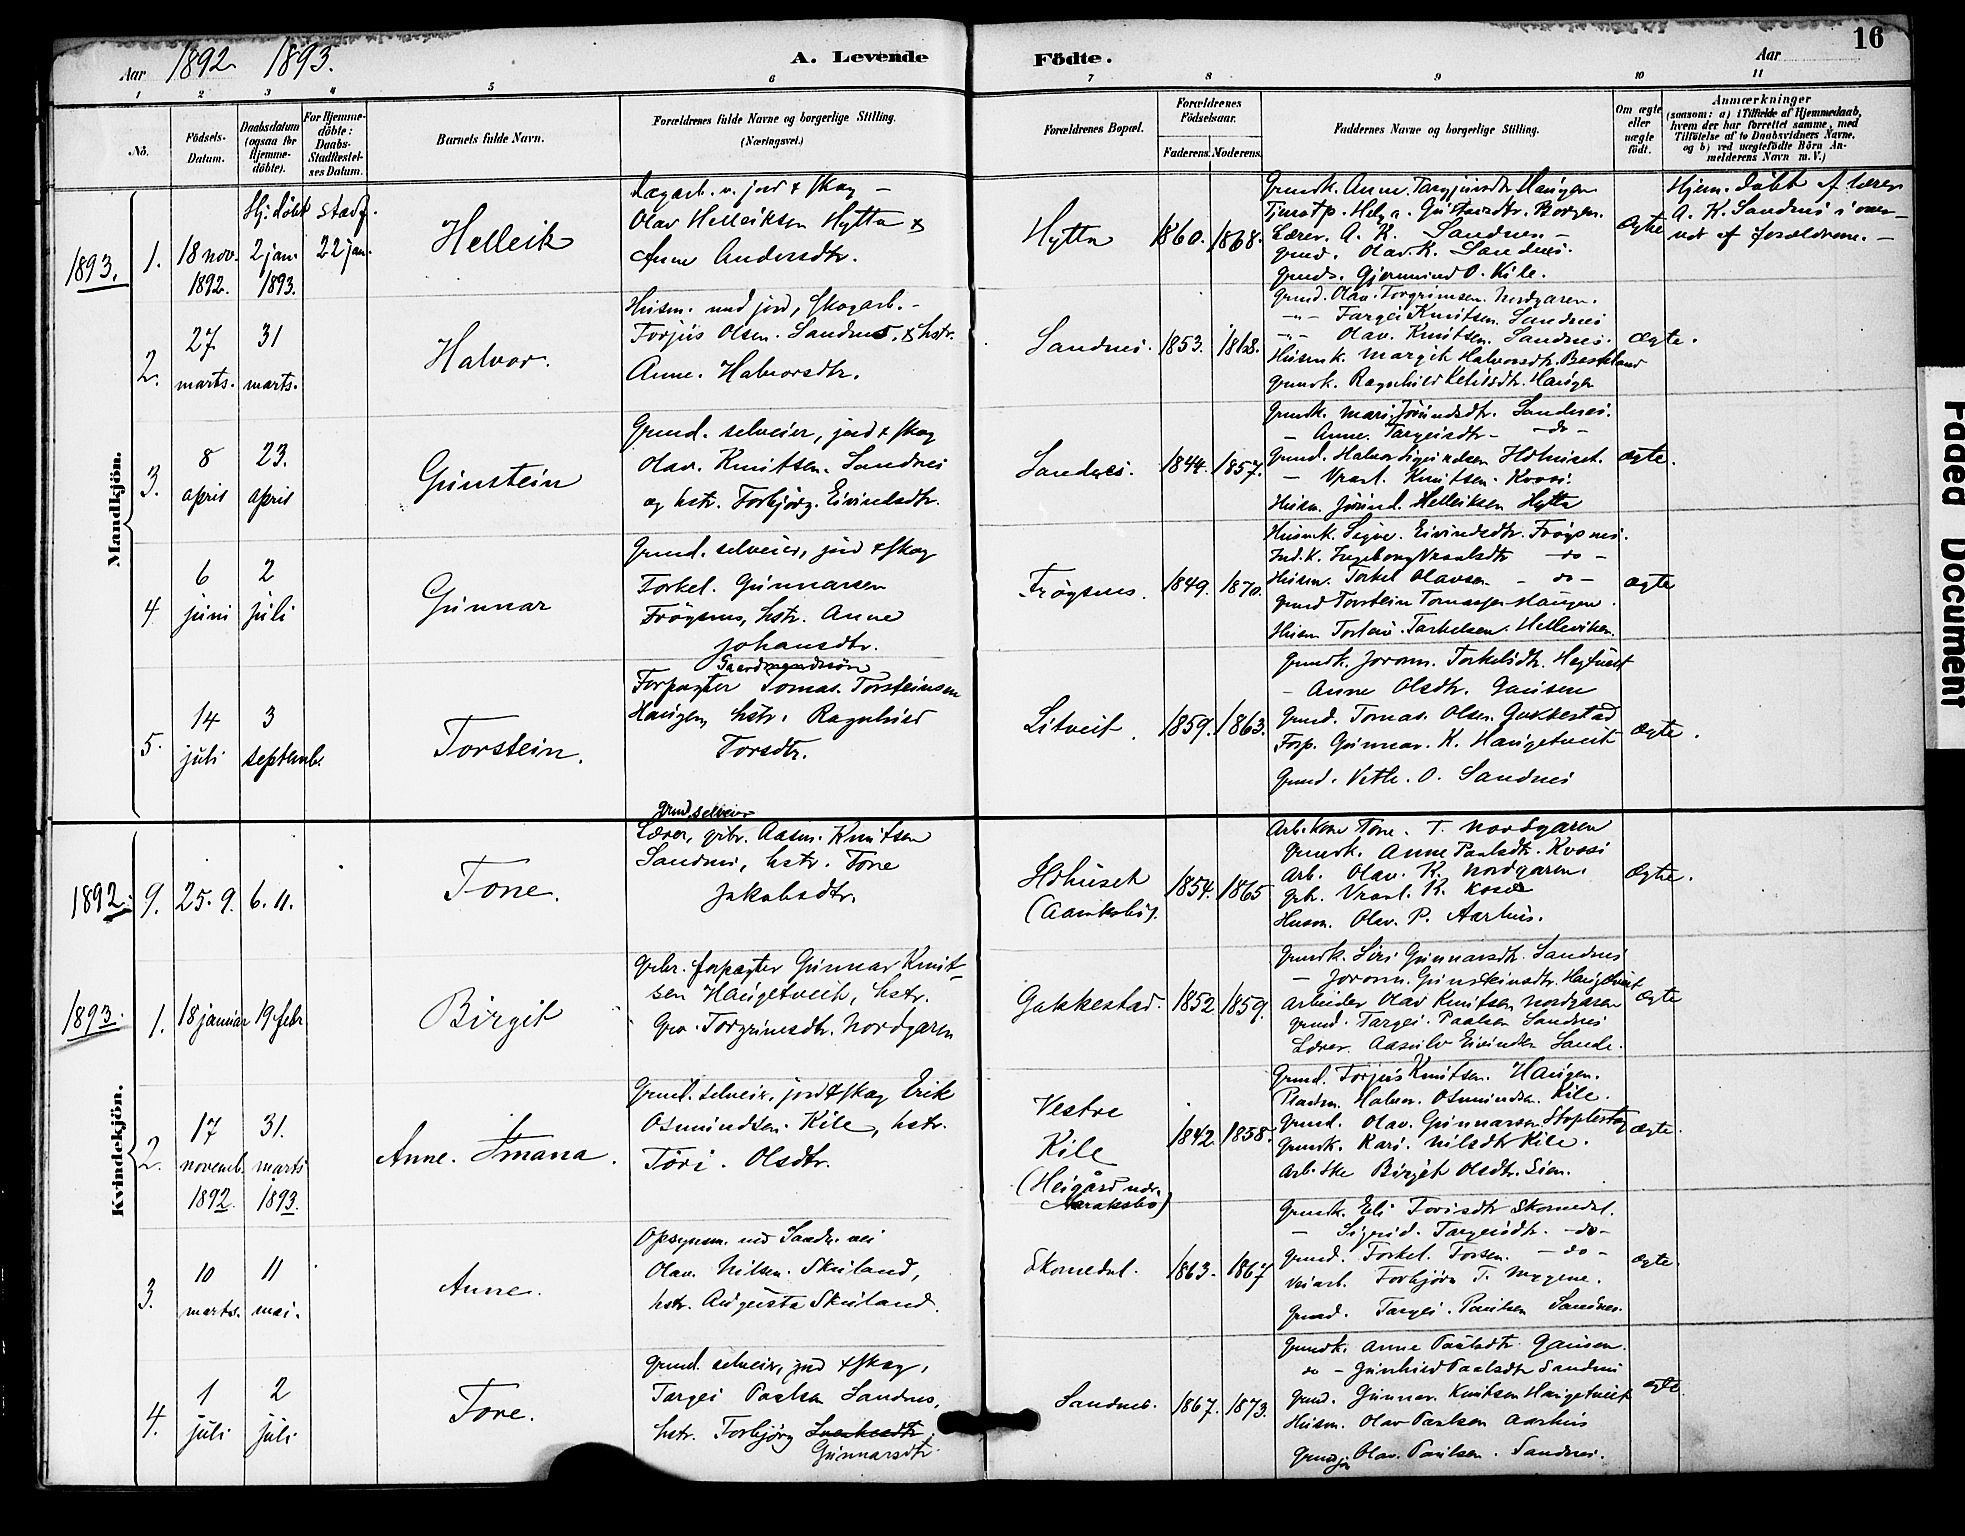 16
Aar 1892 1893.
A. Levende Födte.
Aar
1 2 3 4 5 6 7 8 9 10 11
No.
Födsels-Datum.
Daabsdatum (ogsaa for Hjemmedöbte).
For Hjemmedöbte: Daabs-Stadfæstelses Datum.
Barnets fulde Navn.
Forældrenes fulde Navne og borgerlige Stilling.
(Næringsvei.)
Forældrenes Bopæl.
Forældrenes Födselsaar.
Faderens. Moderens.
Faddernes Navne og borgerlige Stilling.
Om ægte eller uægte födt.
Anmærkninger
(saasom: a) i Tilfælde af Hjemmedaab,
hvem der har forrettet samme, med
Tilföielse af to Daabsvidners Navne,
og b) ved uægtefödte Börn Anmelderens Navn m. V.)
Mandkjön.
1893.
1.
18 nov. 1892.
Hj. döbt 2 jan. 1893.
stadf. 22 jan.
Helleik
jord & skog
Olav Helleiksen Hytta &
Anne Andersdtr.
Hytta
1860. 1868.
Grundk. Anne Targjusdtr Haugen
Lærer. A. K. Sandnes
Grund. Olav K. Sandnes.
Grund. Gjermund O. Kile.
ægte
Hjem. döbt af lærer
A. K. Sandnes i
af forældrene.
2.
27 marts.
31 marts.
Halvor.
Husm. med jord, skogarb.
Torjus Olsen Sandnes, & hstr.
Anne Halvorsdtr.
Sandnes. 1853. 1868.
Grund. Olav Torgrimsen Nordgaren.
Targei Knutsen Sandnes
Olav Knutsen Sandnes.
Husmk. Margit Halvorsdtr.
Grundk. Ragnhild Haugen
ægte.
3.
8 april
23. april
Gunstein
Grund. selveier, jord & skog
Olav Knutsen Sandnes
og hstr. Torbjörg Eivindsdtr.
Sandnes. 1844. 1857.
Grundk. Mari Jörundsdtr. Sandnes.
— Anne Targeisdtr — do —
Grund. Halvor Hohuset.
— Vraal Knutsen
Husm. Jörund Helleiksen Hytta
ægte.
4.
6 juni
2 juli
Gunnar
Grund. selveier, jord & skog
Torkel Gunnarsen
Frøysnes, hstr. Anne
Johansdtr.
Frøysnes. 1849. 1870.
Husmk. Signe Eivindsdtr. Frøysnes.
Ingeborg Vraalsdtr — do —
Husm. Torkel Olavsen — do —
Grund Torstein Haugen.
Husm Tarkelsen Helleviken
ægte
5.
14 juli
3 septemb.
Torstein.
Gaardmandssön
Forpagter Tomas Torsteinsen
Haugen, hstr. Ragnhild
Torsdtr.
Litveit. 1859. 1863.
Grundk. Joronn Torkelsdtr.
— Anne Olsdtr.
Grund. Tomas Olsen Gakkestad
Forp. Gunnar K. Haugetveit
Grund. Vetle O. Sandnes
ægte.
Kvindekjön.
1892.
9.
25.9.
6.11.
Tone.
grund. selveier
Lærer, grbr. Aasm. Knutsen
Sandnes, hstr. Tone
Jakobsdtr.
Hohuset
1854. 1865
Arb.kone Tone T. Nordgaren
Grundk. Anne Paalsdtr.
Arb. Olav K. Nordgaren.
Grbr. Vraal K.
Husm. Olav P. Aarhus.
ægte.
1893.
1.
18 januar
19 febr
Birgit
grbr. forpagter Gunnar Knutsen
Haugetveit, hstr.
Gro Torgrimsdtr. Nordgaren
Gakkestad. 1852 1859.
Grundk. Siri Gunnarsdtr. Sandnes
— Joronn Gunsteinsdtr Haugetveit
arbeider Olav Knutsen Nordgaren
Grund. Targei Paalsen Sandnes
Lærer. Aasulv Eivindsen Sande.
ægte
2.
17 novemb. 1892
31. marts 1893.
Anne.
Grund. selveier, jord & skog Erik
Osmundsen Kile, hstr.
Olsdtr.
Vestre
Kile
1842. 1858.
Grund. Torjus Knutsen Haugen.
Halvor Osmundsen Kile.
Grund. Olav Gunnarsen
Grundk. Kari Nilsdtr Kile.
Birgit Olsdtr.
ægte.
3.
10 marts.
11 mai.
Anne.
Olav Nilsen Skuland,
hstr. Augusta Skuland.
Skomedal. 1863. 1867
Grundk. Eli Torisdtr Skomedal.
— Sigrid Targeisdtr. — do —
Grund. Torkel Torsen — do —
Veiarb. Torbjörn T.
Grund. Targei Paulsen Sandnes.
ægte.
4.
1 juli
2 juli
Tore.
Grund. selveier, jord & skog,
Targei Paalsen Sandnes,
hstr. Torbjörg
Gunnarsdtr
Sandnes. 1867. 1873.
Grundk. Anne Paalsdtr
do — Gunhild Paalsdtr Sandnes
Grund. Gunnar Knutsen Haugetveit
Husm. Olav Paulsen Aarhus
Olav Paulsen Sandnes.
ægte.
Faded Document